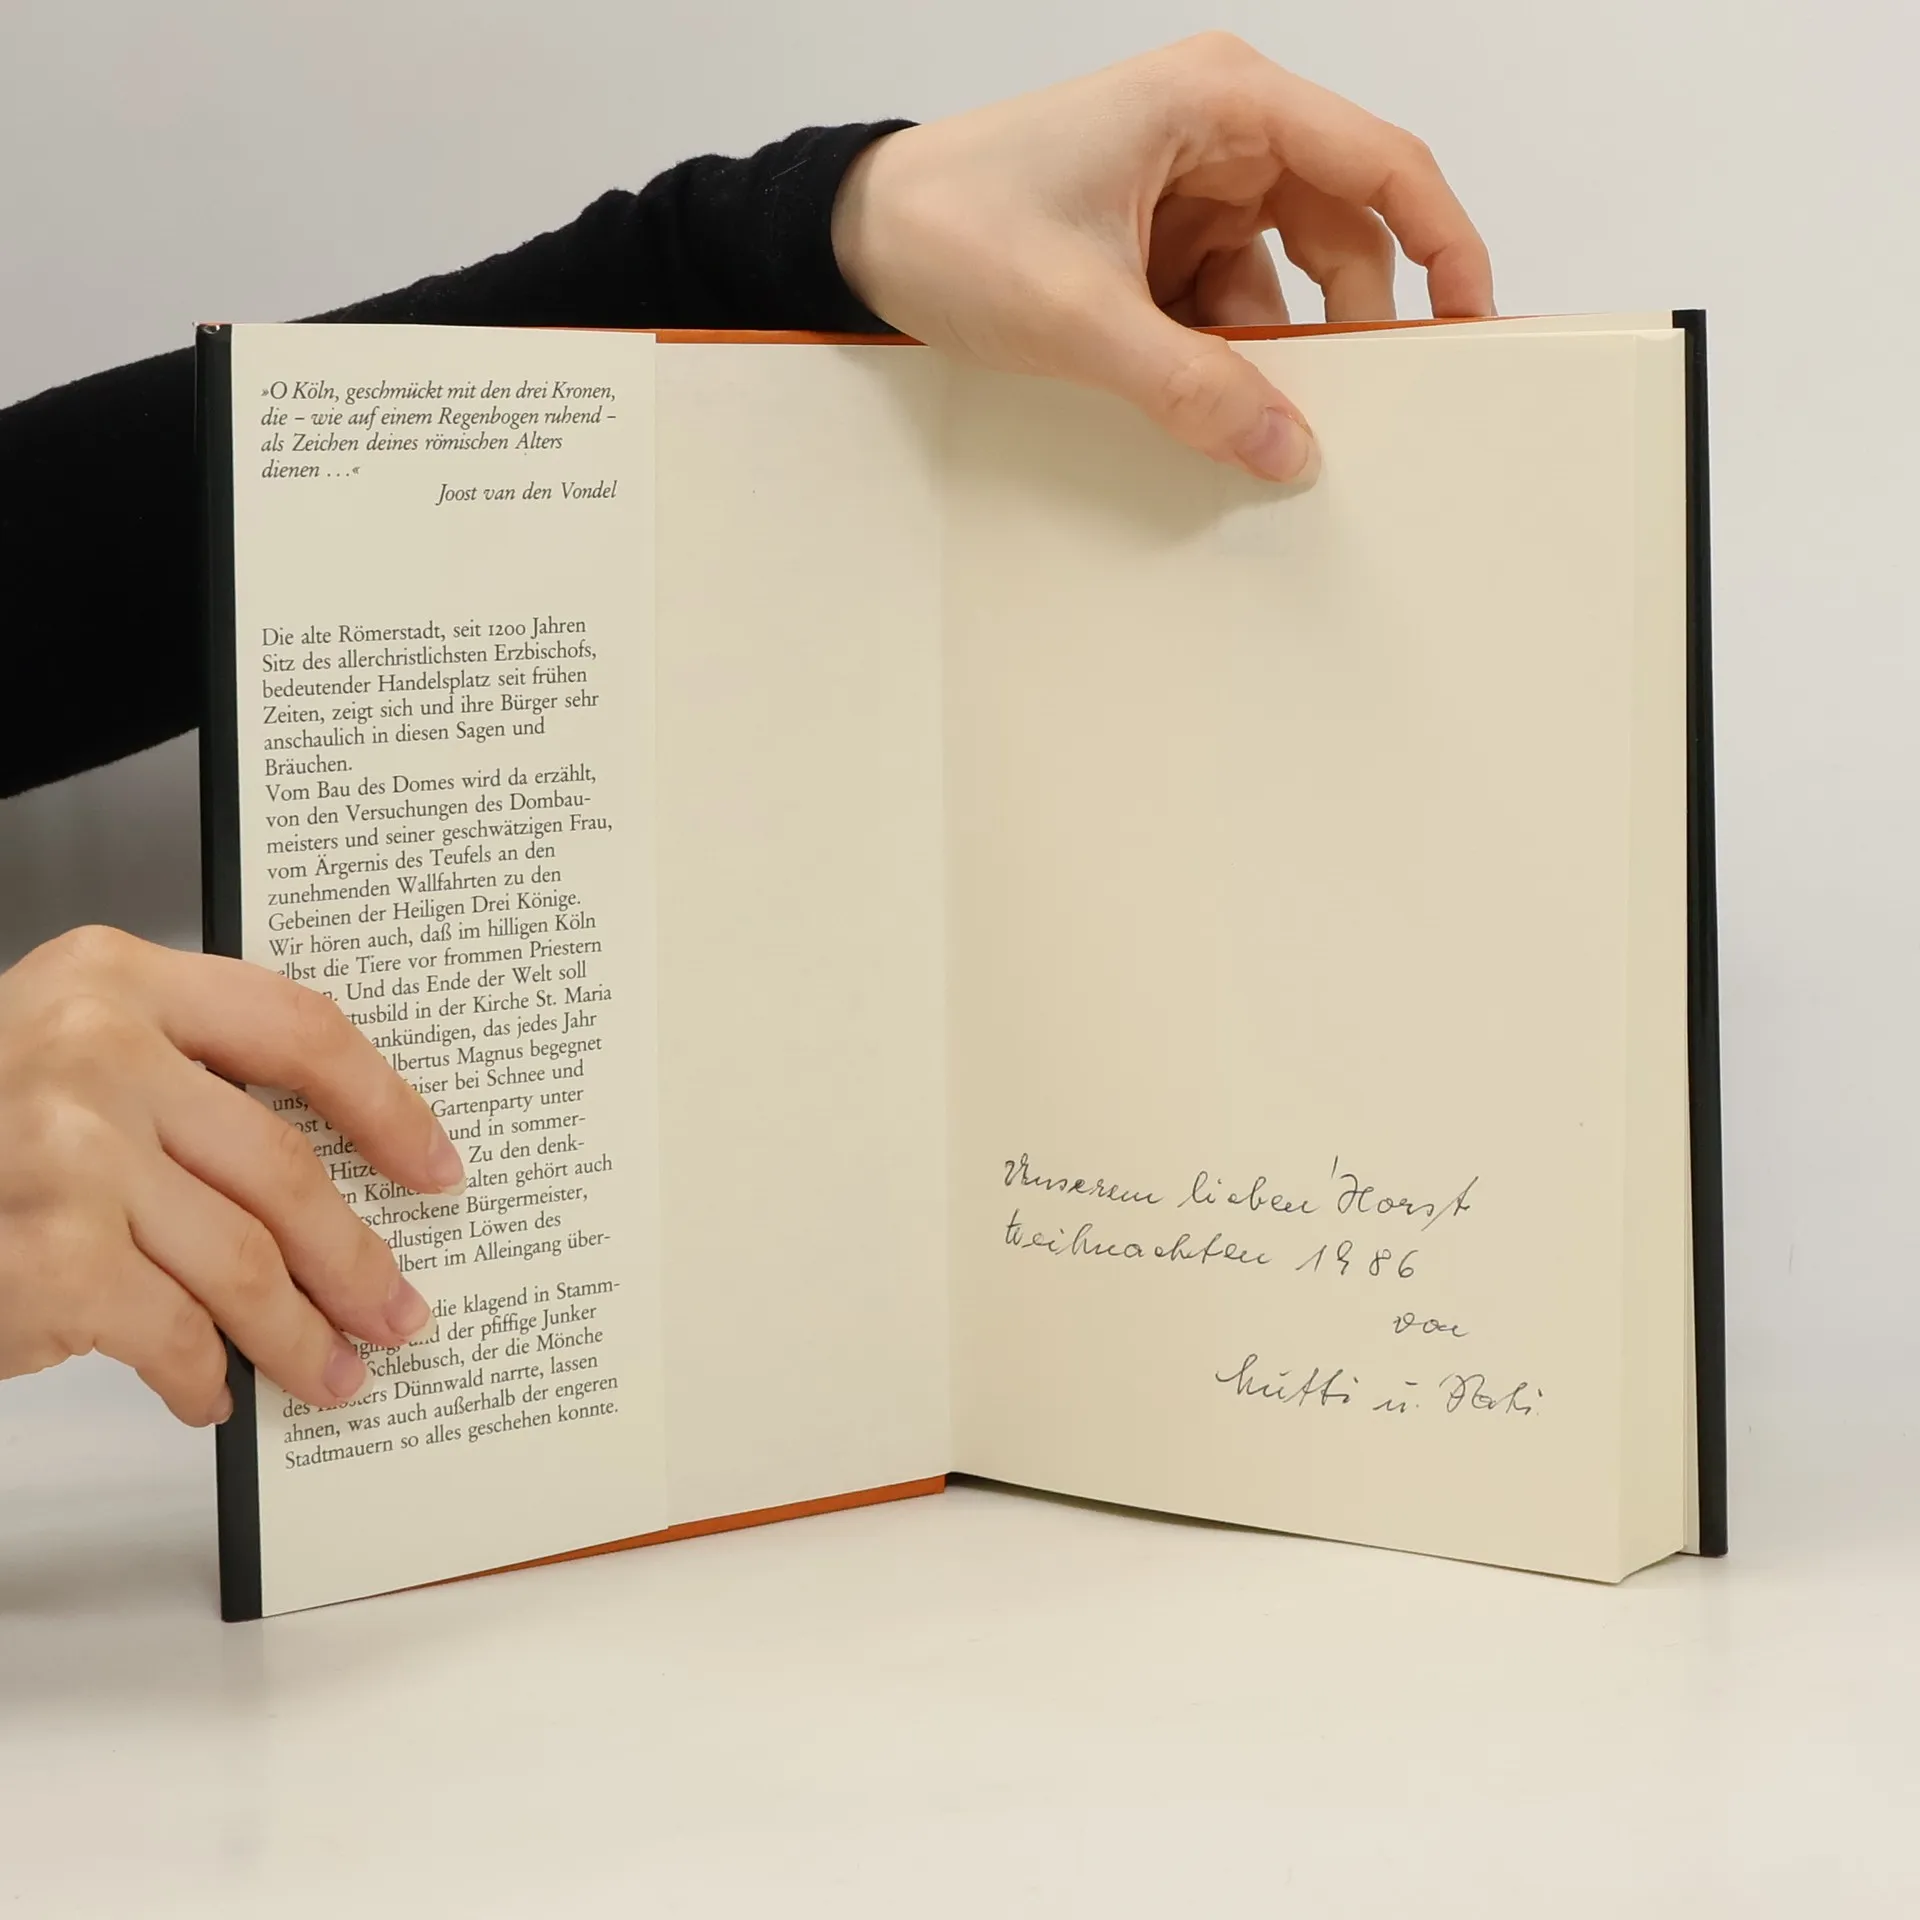 »O Köln, geschmückt mit den drei Kronen,
die – wie auf einem Regenbogen ruhend –
als Zeichen deines römischen Alters
dienen ...«
Joost van den Vondel
Die alte Römerstadt, seit 1200 Jahren
Sitz des allerchristlichsten Erzbischofs,
bedeutender Handelsplatz seit frühen
Zeiten, zeigt sich und ihre Bürger sehr
anschaulich in diesen Sagen und
Bräuchen.
Vom Bau des Domes wird da erzählt,
von den Versuchungen des Dombau-
meisters und seiner geschwätzigen Frau,
vom Ärgernis des Teufels an den
zunehmenden Wallfahrten zu den
Gebeinen der Heiligen Drei Könige.
Wir hören auch, daß im hilligen Köln
elbst die Tiere vor frommen Priestern
n. Und das Ende der Welt soll
tusbild in der Kirche St. Maria
ankündigen, das jedes Jahr
lbertus Magnus begegnet
uns, aiser bei Schnee und
ost Gartenparty unter
ende und in sommer-
Hitze Zu den denk-
n Kölne alten gehört auch
schrockene Bürgermeister,
dlustigen Löwen des
lbert im Alleingang über-
die klagend in Stamm-
und der pfiffige Junker
Schlebusch, der die Mönche
des Klosters Dünnwald narrte, lassen
ahnen, was auch außerhalb der engeren
Stadtmauern so alles geschehen konnte.
Unserem lieben Horst
Weihnachten 1986
von
Mutti u.